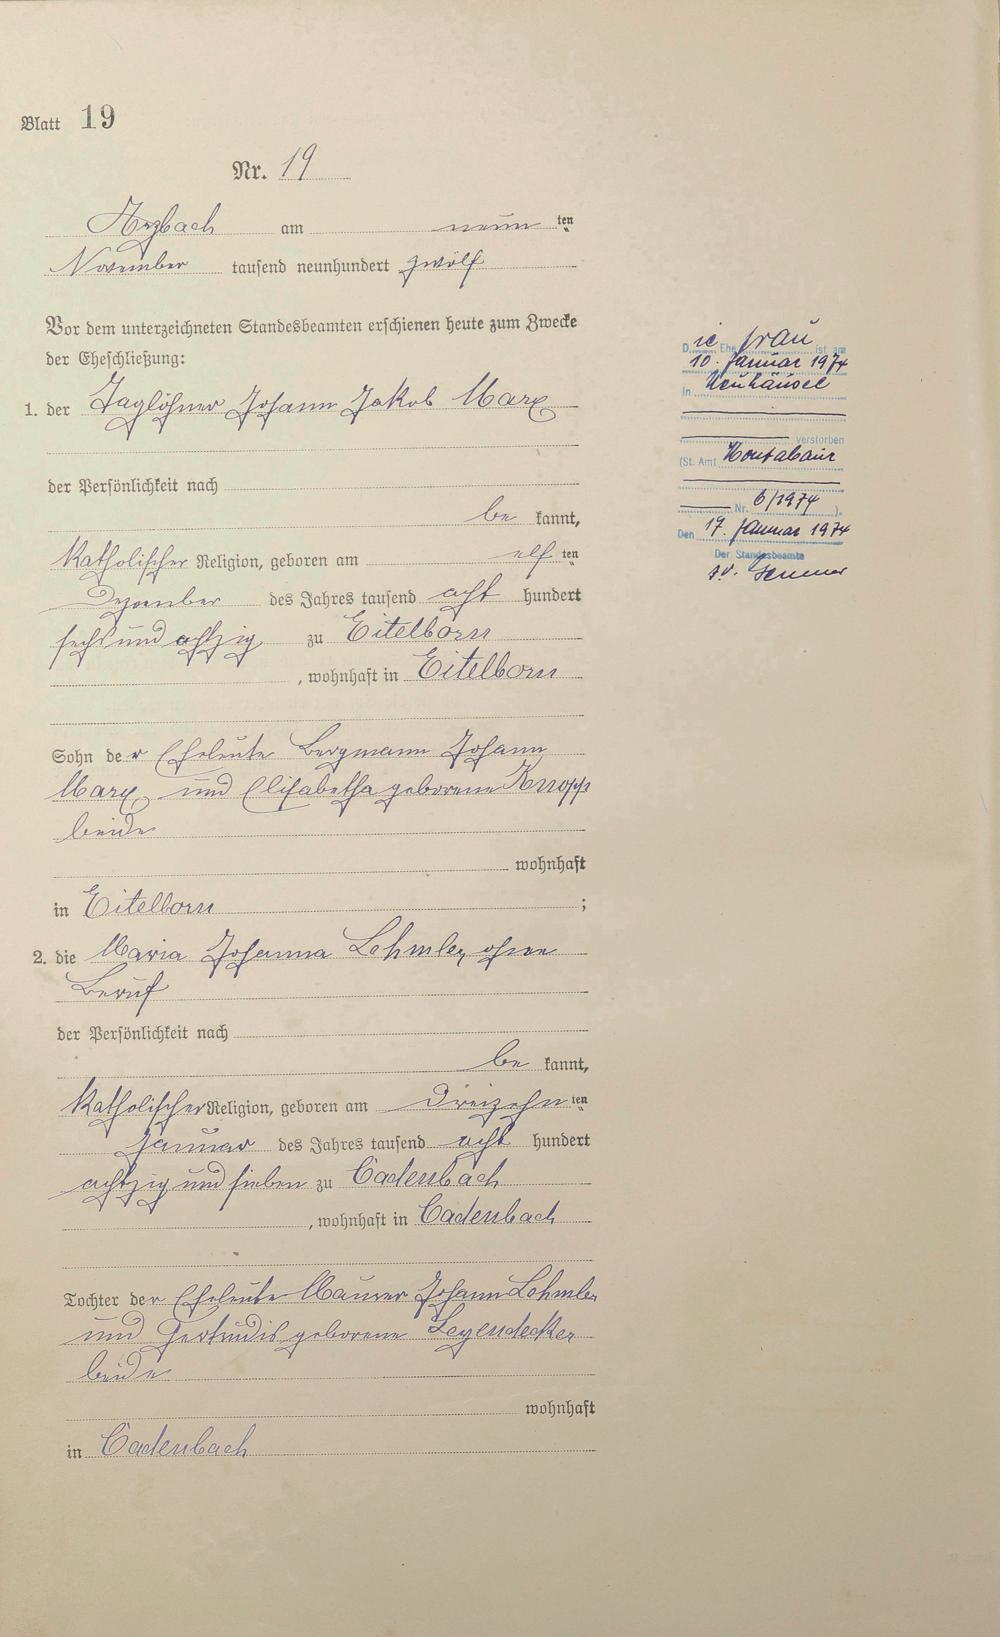 Blatt 19
Nr. 19
Arzbach am neunten
November tausend neunhundert zwölf
Vor dem unterzeichneten Standesbeamten erschienen heute zum Zwecke
der Eheschließung:
1. der Taglöhner Johann Jakob Marx
der Persönlichkeit nach
be kannt,
katholischer Religion, geboren am elf ten
Dezember des Jahres tausend acht hundert
sechs und achtzig zu Eitelborn
, wohnhaft in Eitelborn
Sohn der Eheleute Bergmann Johann
Marx und Elisabetha geborene Knopp
beide
wohnhaft
in Eitelborn ;
2. die Maria Johanna Lehmler, ohne
Beruf
der Persönlichkeit nach
be kannt,
katholischer Religion, geboren am dreizehn ten
Januar des Jahres tausend acht hundert
achtzig und sieben zu Cadenbach
, wohnhaft in Cadenbach
Tochter der Eheleute Maurer Johann Lehmler
und Gertrudis geborene Leyendecker
beide
wohnhaft
in Cadenbach
Die Ehefrau ist am
10. Januar 1974
in Neuhäusel
verstorben
(St. Amt Montabaur
Nr. 6/1974 ).
Den 17. Januar 1974
Der Standesbeamte